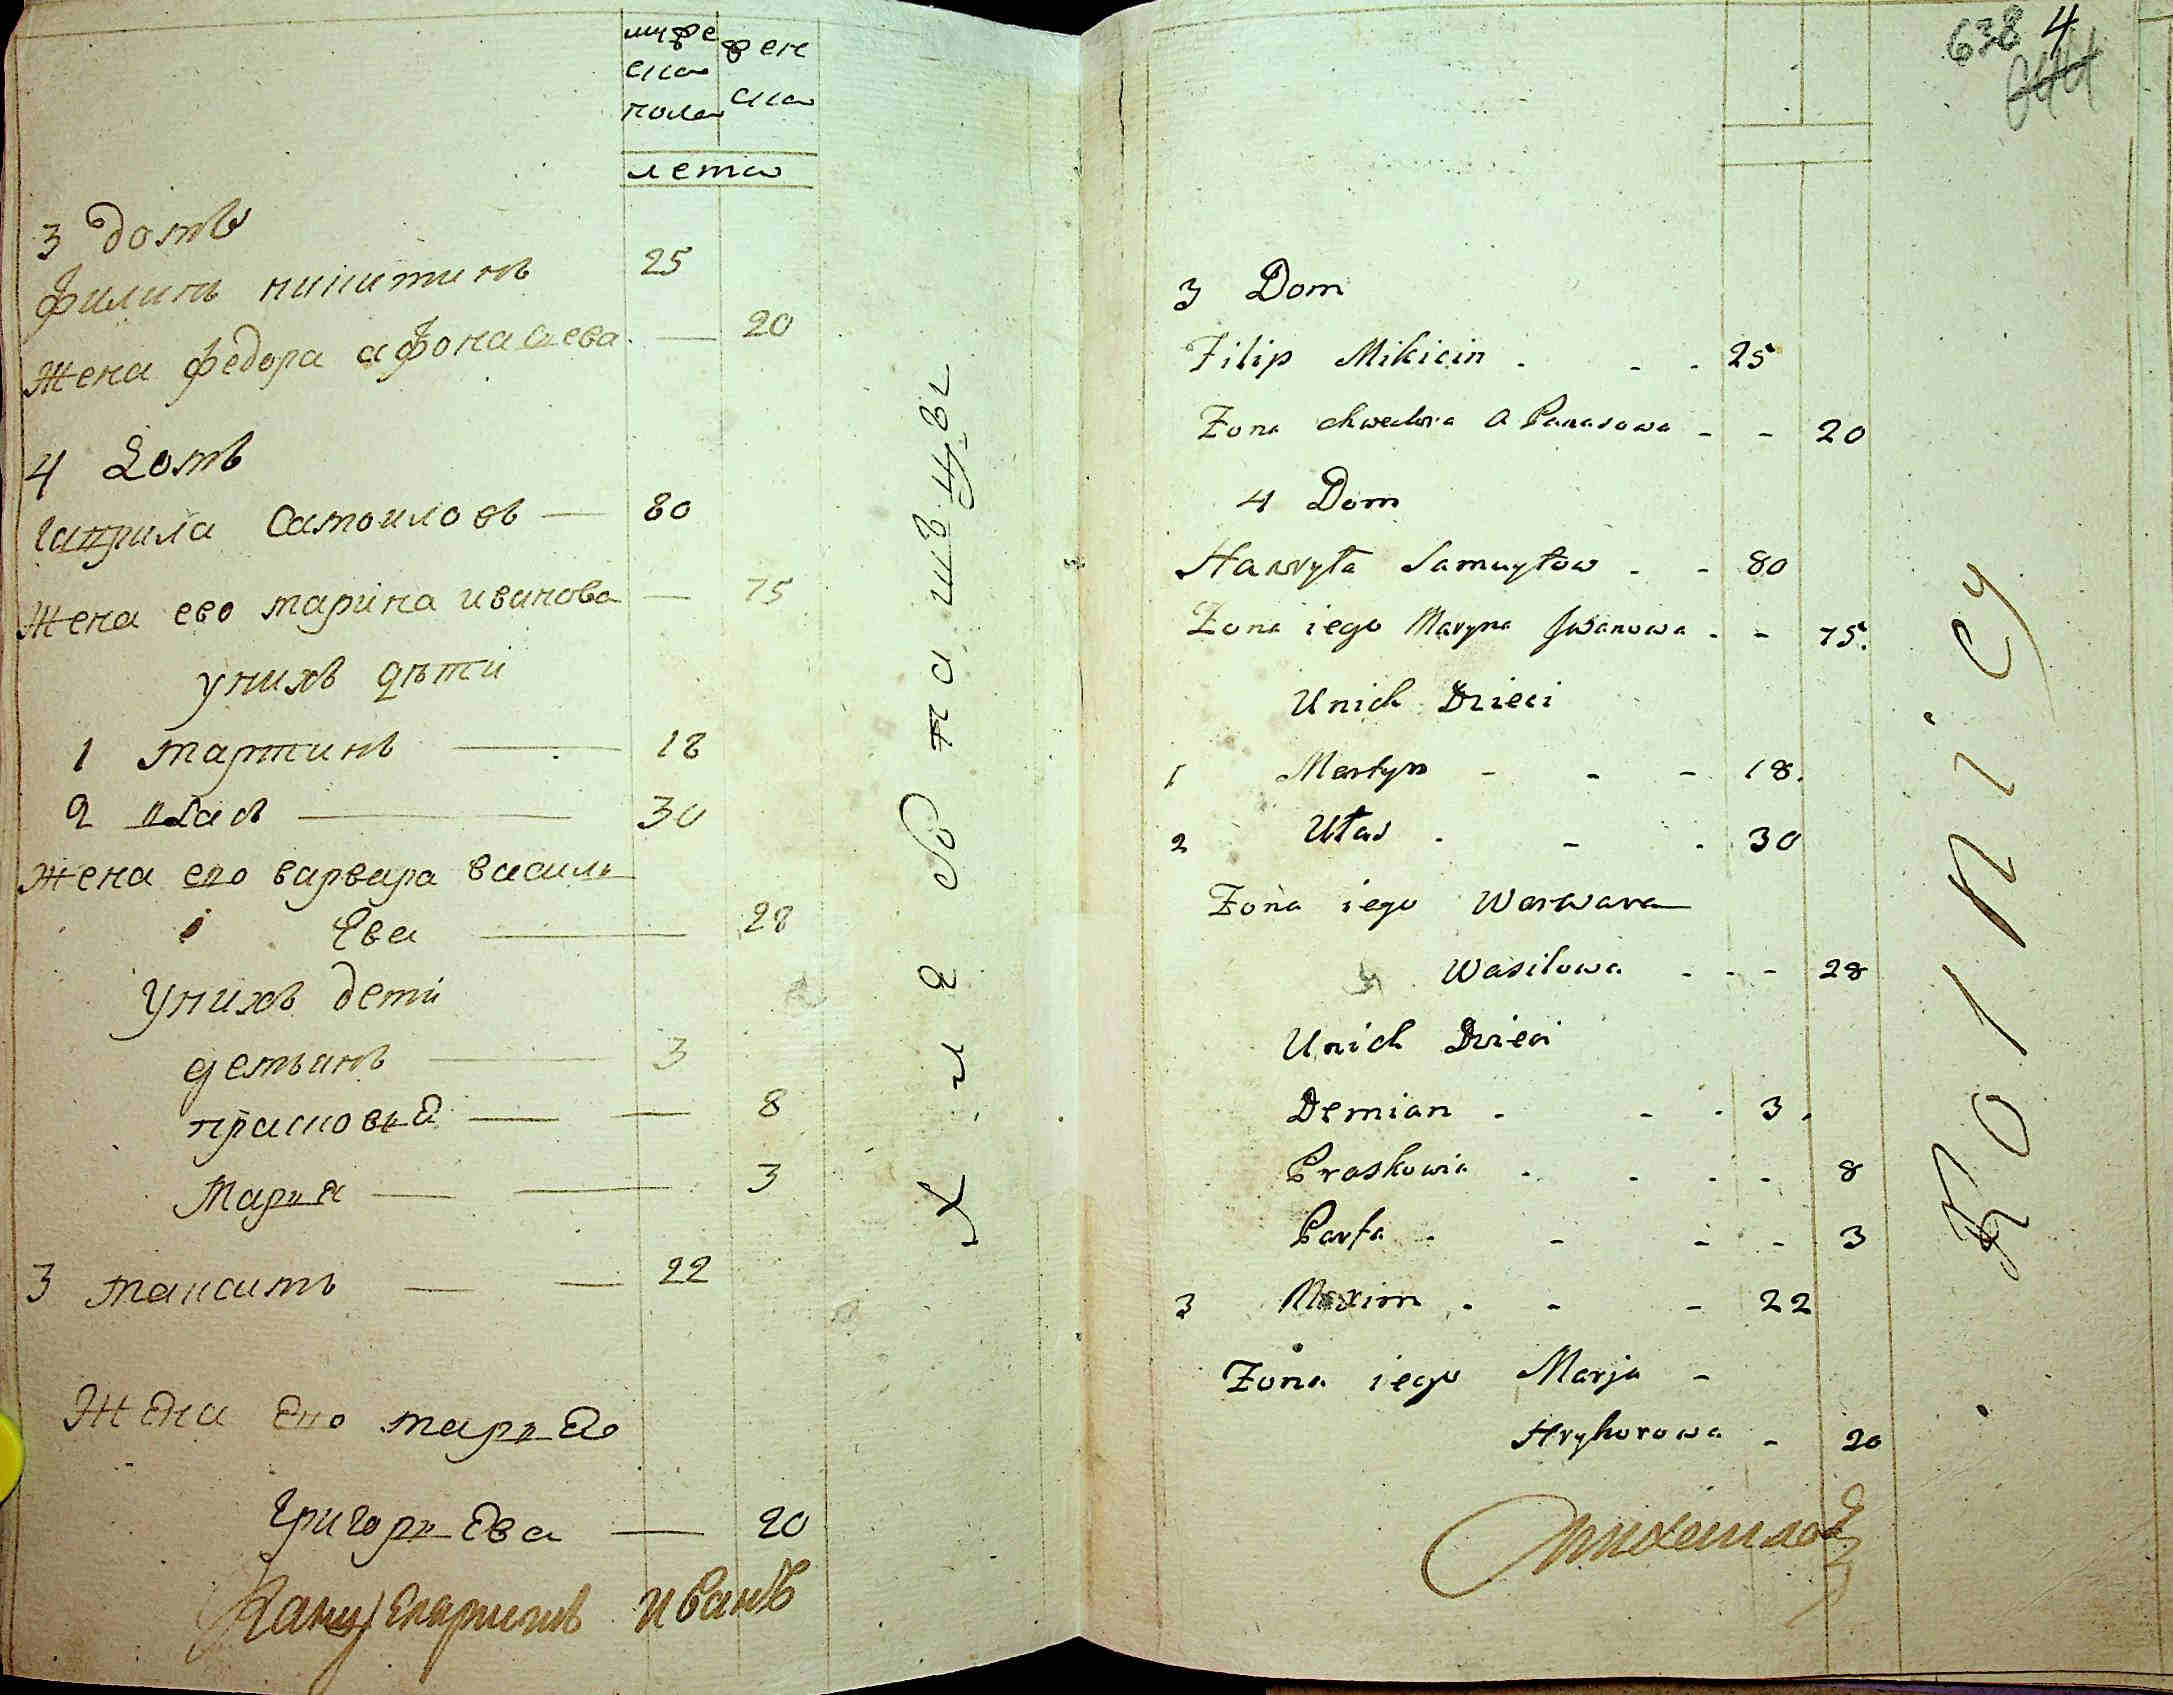 муже
ска
пола
жен
ска
лета
3 домъ
Филипъ никитинъ 25
Жена федора афонасева — 20
4 домъ
гаврила самоиловъ — 80
Жена ево марина иванова — 75
унихъ дѣти
1 мартинъ — 18
2 влас — 30
жена ево варвара василь
ева — 28
унихъ дети
демьянъ — 3
прасковья — — 8
марья — — 3
3 максимъ — — 22
Жена ево марья
григорьева — 20
иванъ
638 4
3 Dom
Filip Mikicin . - . 25
Zona chwedora A Panasowa - - 20
4 Dom
Hawryła Samuyłow . - 80
Zona iego Maryna Jwanowa . - 75.
Unich Dzieci
1 Martyn - - - 18.
2 Ułas . - . 30
Zona iego Warwara
Wasilowa - - - 28
Unich Dzieci
Demian . - . 3.
Praskowia . . . - 8
Parfa - - - - 3
3 Maxim . - - 22
Zona iego Marja -
Hryhorowa - 20